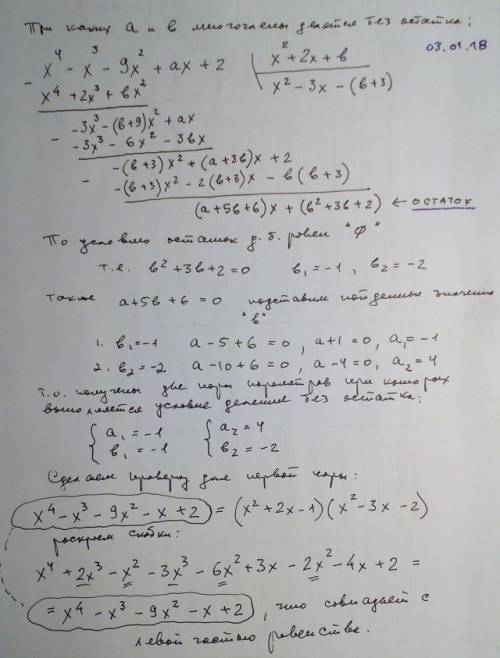 При каких a и в многочлены делятся без остатка:
03.01.18
x⁴ - x³ - 9x² + ax + 2 | x² + 2x + в
- x⁴ + 2x³ + вx² | x² - 3x - (в+3)
-3x³ - (в+9)x² + ax
- -3x³ - 6x² - 3вx
-(в+3)x² + (a+3в)x + 2
- -(в+3)x² - 2(в+3)x - в(в+3)
(a+5в+6)x + (в²+3в+2) ← ОСТАТОК
По условию остаток д.б. равен "Ф"
т.е. в²+3в+2=0 в₁=-1, в₂=-2
также a+5в+6=0 подставим найденные значения
"в"
1. в₁=-1 a-5+6=0, a+1=0, a₁=-1
2. в₂=-2 a-10+6=0, a-4=0, a₂=4
Т.о. получены две пары параметров при которых
выполняется условие деления без остатка:
{ a₁=-1 { a₂=4
{ в₁=-1 { в₂=-2
Сделаем проверку для первой пары:
x⁴-x³-9x²-x+2 = (x²+2x-1)(x²-3x-2)
раскроем скобки:
x⁴+2x³-x²-3x³-6x²+3x-2x²-4x+2 =
= x⁴-x³-9x²-x+2, что совпадает с
левой частью равенства.